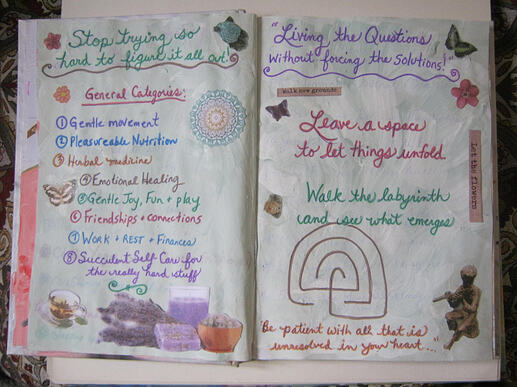 Stop trying so
hard to figure it all out!
General Categories:
① Gentle movement
② Pleasureable Nutrition
③ Herbal medicine
④ Emotional Healing
⑤ Gentle Joy, Fun + play
⑥ Friendships + connections
⑦ Work + REST + Finances
⑧ Succulent Self-Care for
the really hard stuff
"Living the Questions
without forcing the solutions!"
Walk new grounds
Leave a space
to let things unfold
Let the flowers
Walk the labyrinth
and see what emerges
"Be patient with all that is
unresolved in your heart..."